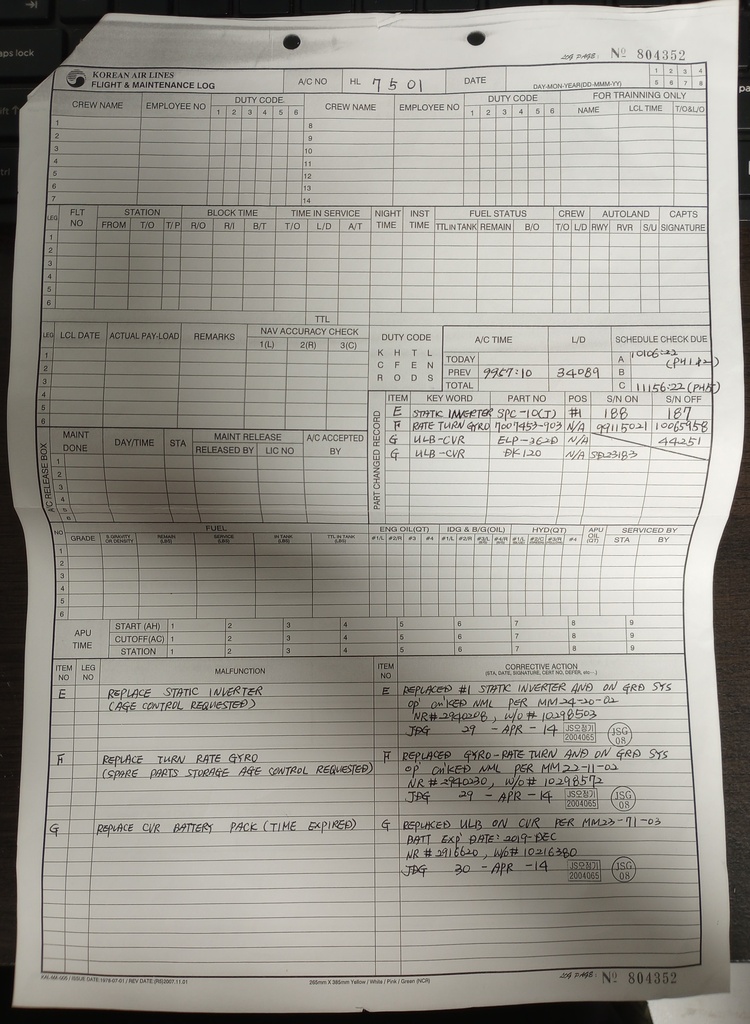 LOG PAGE: Nº 804352
KOREAN AIR LINES
FLIGHT & MAINTENANCE LOG
A/C NO HL 7501 DATE DAY-MON-YEAR(DD-MMM-YY) 1 2 3 4
5 6 7 8
CREW NAME EMPLOYEE NO DUTY CODE CREW NAME EMPLOYEE NO DUTY CODE FOR TRAINNING ONLY
1 2 3 4 5 6 1 2 3 4 5 6 NAME LCL TIME T/O&L/O
1 8
2 9
3 10
4 11
5 12
6 13
7 14
LEG FLT NO STATION BLOCK TIME TIME IN SERVICE NIGHT TIME INST TIME FUEL STATUS CREW AUTOLAND CAPTS SIGNATURE
FROM T/O T/P R/O R/I B/T T/O L/D A/T TTL IN TANK REMAIN B/O T/O L/D RWY RVR S/U
1
2
3
4
5
6
TTL
LEG LCL DATE ACTUAL PAY-LOAD REMARKS NAV ACCURACY CHECK
1(L) 2(R) 3(C)
1
2
3
4
5
6
DUTY CODE
K H T L
C F E N
R O D S
A/C TIME L/D SCHEDULE CHECK DUE
TODAY A 10106:22 (PH1&2)
PREV 9967:10 34089 B
TOTAL C 11156:22 (PH15)
PART CHANGED RECORD
ITEM KEY WORD PART NO POS S/N ON S/N OFF
E STATIC INVERTER SPC-10(J) #1 188 187
F RATE TURN GYRO 7007453-903 N/A 99115021 10065958
G ULB-CVR ELP-362D N/A 44251
G ULB-CVR DK120 N/A SD23183
A/C RELEASE BOX
MAINT DONE DAY/TIME STA MAINT RELEASE A/C ACCEPTED BY
RELEASED BY LIC NO
1
2
3
4
5
6
NO FUEL ENG OIL(QT) IDG & B/G(OIL) HYD(QT) APU OIL (QT) SERVICED BY
GRADE S.GRAVITY OR DENSITY REMAIN (LBS) SERVICE (LBS) IN TANK (LBS) TTL IN TANK (LBS) #1/L #2/R #3 #4 #1/L #2/R #4 STA BY
1
2
3
4
5
6
APU TIME
START (AH) 1 2 3 4 5 6 7 8 9
CUTOFF(AC) 1 2 3 4 5 6 7 8 9
STATION 1 2 3 4 5 6 7 8 9
ITEM NO LEG NO MALFUNCTION ITEM NO CORRECTIVE ACTION
(STA, DATE, SIGNATURE, CERT NO, DEFER, etc···)
E REPLACE STATIC INVERTER
(AGE CONTROL REQUESTED)
E REPLACED #1 STATIC INVERTER AND ON GRD SYS
OP' CH'KED NML PER MM24-20-02
NR#2940208, W/O#10298503
JDG 29 - APR - 14 JS오정기 2004065 JSG 08
F REPLACE TURN RATE GYRO
(SPARE PARTS STORAGE AGE CONTROL REQUESTED)
F REPLACED GYRO-RATE TURN AND ON GRD SYS
OP CH'KED NML PER MM22-11-02
NR#2940230, W/O#10298572
JDG 29 - APR - 14 JS오정기 2004065 JSG 08
G REPLACE CVR BATTERY PACK (TIME EXPIRED)
G REPLACED ULB ON CVR PER MM23-71-03
BATT EXP' DATE: 2019-DEC
NR#2916620, W/O#10216380
JDG 30 - APR - 14 JS오정기 2004065 JSG 08
KAL-MM-008 / ISSUE DATE:1979-07-01 / REV DATE (R5)2007.11.01
265mm X 385mm Yellow / White / Pink / Green (NCR)
LOG PAGE: Nº 804352
aps lock